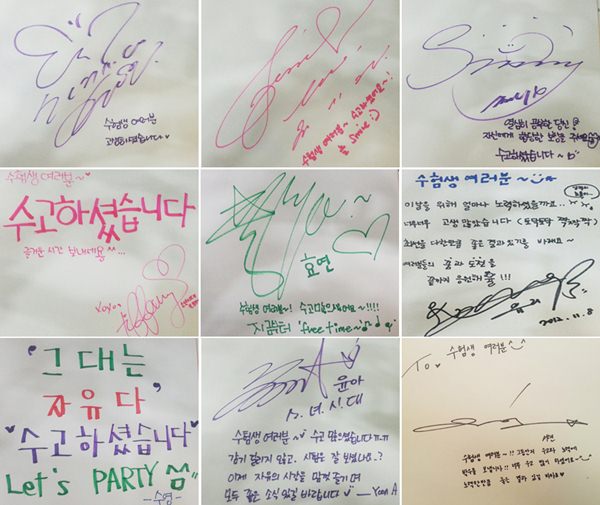 수험생 여러분
고생하셨습니다
수험생 여러분~ 수고했어요~!
Smile :)
Sunny
열심히 공부한 당신!
자신에게
수고하셨습니다~
수험생 여러분~
수고하셨습니다
즐거운 시간 보내세용~
xoxo.
tiffany
Hyo.
효연
수험생 여러분~! 수고많으셨어요~!!!!
지금부터 'free time~'
수험생 여러분~
이날을 위해 얼마나 노력하셨을까요..
너무너무 고생 많았습니다 (토닥토닥 짝짝짝)
최선을 다한만큼 좋은 결과 있기를 바래요~
여러분들의 꿈과 도전을
끝까지 응원해욧!!!
유리
2012. 11. 8
'그대는
자유다'
"수고하셨습니다"
Let's PARTY 숨
-수영-
윤아
소녀시대
수험생 여러분~ 수고 많으셨습니다
감기 걸리지 않고, 시험은 잘 보셨나요..?
이제 자유의 시간을 맘껏 즐기며
모두 좋은 소식 있길 바랍니다 — Yoon A
To. 수험생 여러분^^
서현
수험생 여러분~!! 그동안의 수고와 노력에
박수를 보냅니다!! 너무 수고 많이 하셨어요~
노력한만큼 좋은 결과